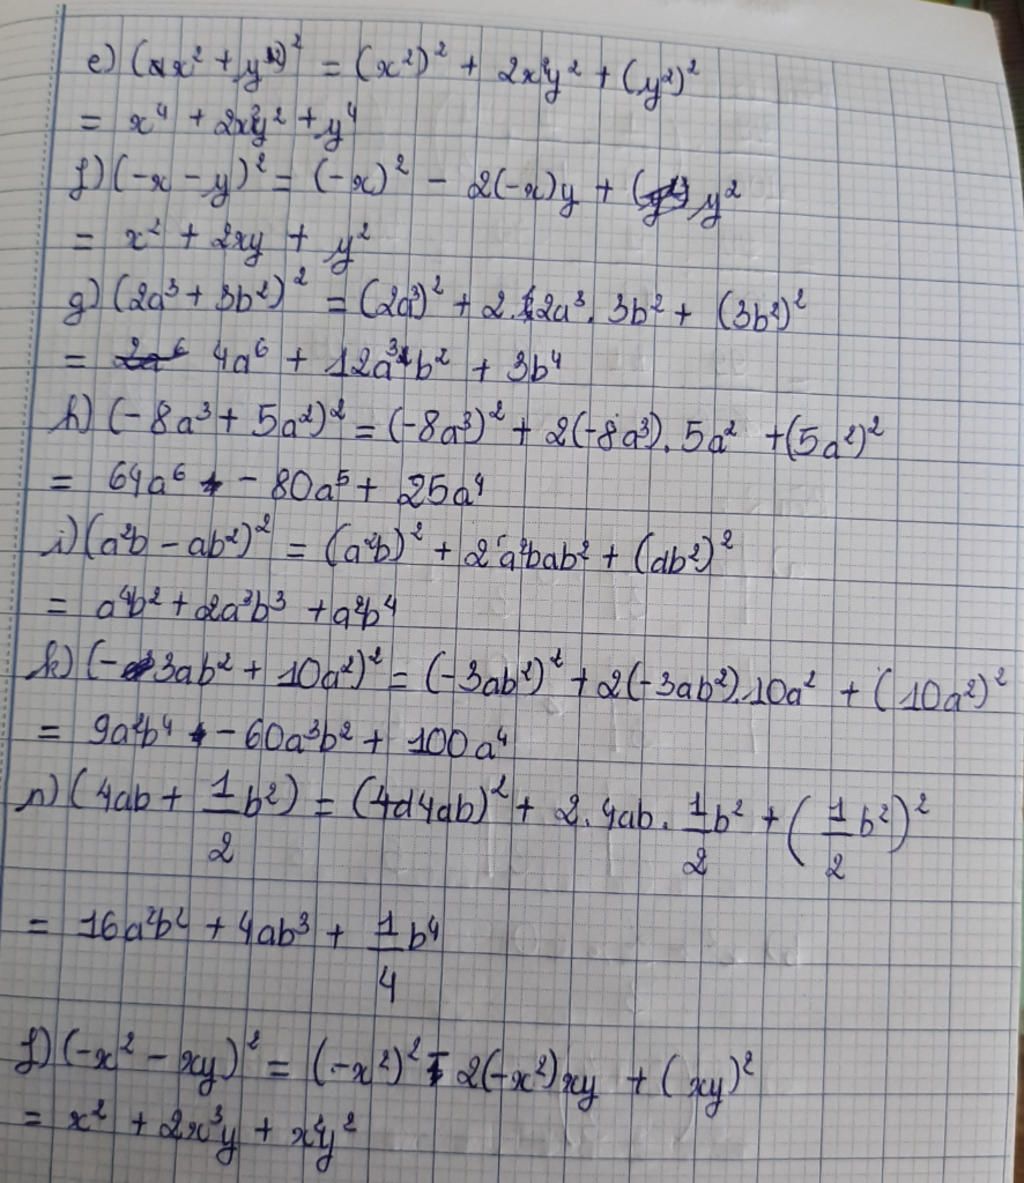 e) (x² + y²)² = (x²)² + 2x²y² + (y²)²
= x⁴ + 2x²y² + y⁴
f) (-x - y)² = (-x)² - 2(-x)y + y²
= x² + 2xy + y²
g) (2a³ + 3b²)² = (2a³)² + 2. 2a³. 3b² + (3b²)²
= 4a⁶ + 12a³b² + 3b⁴
h) (-8a³ + 5a²)² = (-8a³)² + 2(-8a³). 5a² + (5a²)²
= 64a⁶ - 80a⁵ + 25a⁴
i) (a²b - ab²)² = (a²b)² + 2a²bab² + (ab²)²
= a⁴b² + 2a³b³ + a²b⁴
k) (-3ab² + 10a²)² = (-3ab²)² + 2(-3ab²).10a² + (10a²)²
= 9a²b⁴ - 60a³b² + 100a⁴
n) (4ab + 1/2 b²) = (4a4ab)² + 2. 4ab. 1/2 b² + (1/2 b²)²
= 16a²b² + 4ab³ + 1/4 b⁴
f) (-x² - xy)² = (-x²)² - 2(-x²)xy + (xy)²
= x² + 2x³y + x²y²